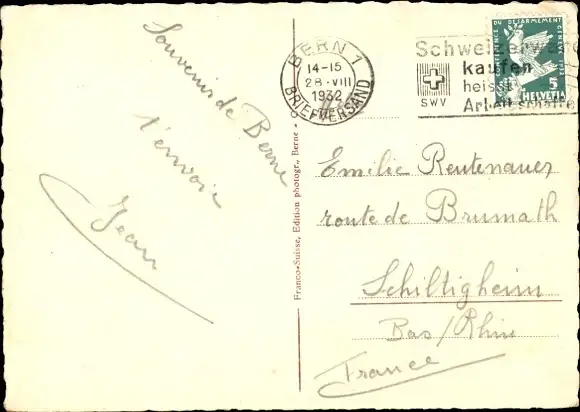 Souvenir de Berne
t'envoie
Jean
BERN 1
14-15
28·VIII
1932
BRIEFVERSAND
Schweizerware
kaufen
heisst
Arbeit schaffen
SWV
CONFERENCE DU DESARMEMENT GENEVE 1932
5
HELVETIA
Franco-Suisse, Edition photogr., Berne
Emilie Reutenauer
route de Brumath
Schiltigheim
Bas/Rhin
France